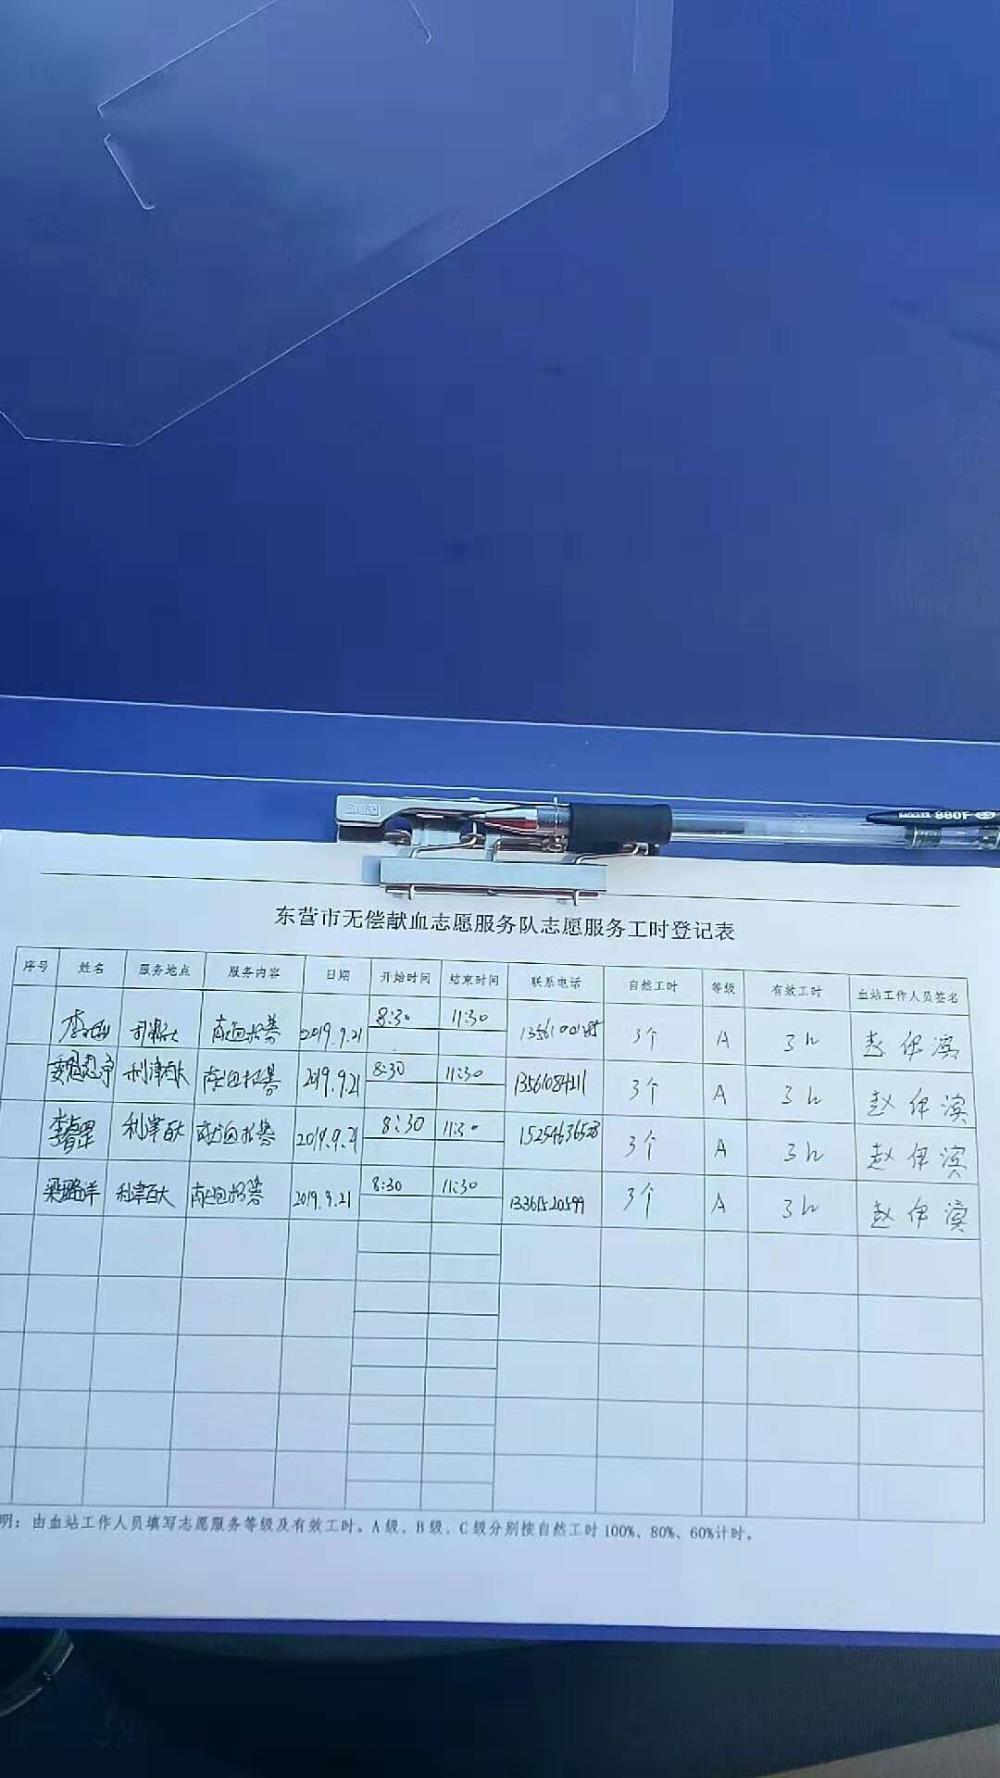 880F
东营市无偿献血志愿服务队志愿服务工时登记表
序号 姓名 服务地点 服务内容 日期 开始时间 结束时间 联系电话 自然工时 等级 有效工时 血站工作人员签名
2019.9.21 8:30 11:30 3个 A 3h 赵伊滨
利津百大 献血招募 2019.9.21 8:30 11:30 13561084211 3个 A 3h 赵伊滨
利津百大 献血招募 2019.9.21 8:30 11:30 15254636528 3个 A 3h 赵伊滨
梁璐洋 利津百大 献血招募 2019.9.21 8:30 11:30 13361520599 3个 A 3h 赵伊滨
明：由血站工作人员填写志愿服务等级及有效工时。A级、B级、C级分别按自然工时100%、80%、60%计时。